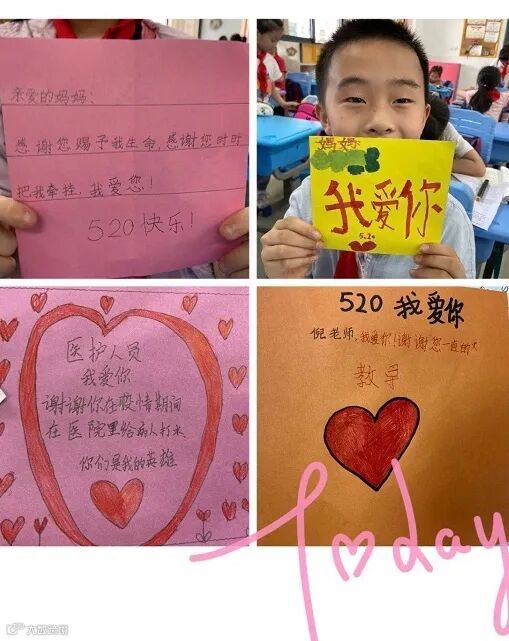 亲爱的妈妈：
感谢您赐予我生命，感谢您时时
把我牵挂，我爱您！
520快乐！
妈妈：
我爱你
5.20
医护人员
我爱你
谢谢你在疫情期间
在医院里给病人打水
你们是我的英雄
520 我爱你
倪老师，我爱你！谢谢您一直的
教导
Today
大数跨境